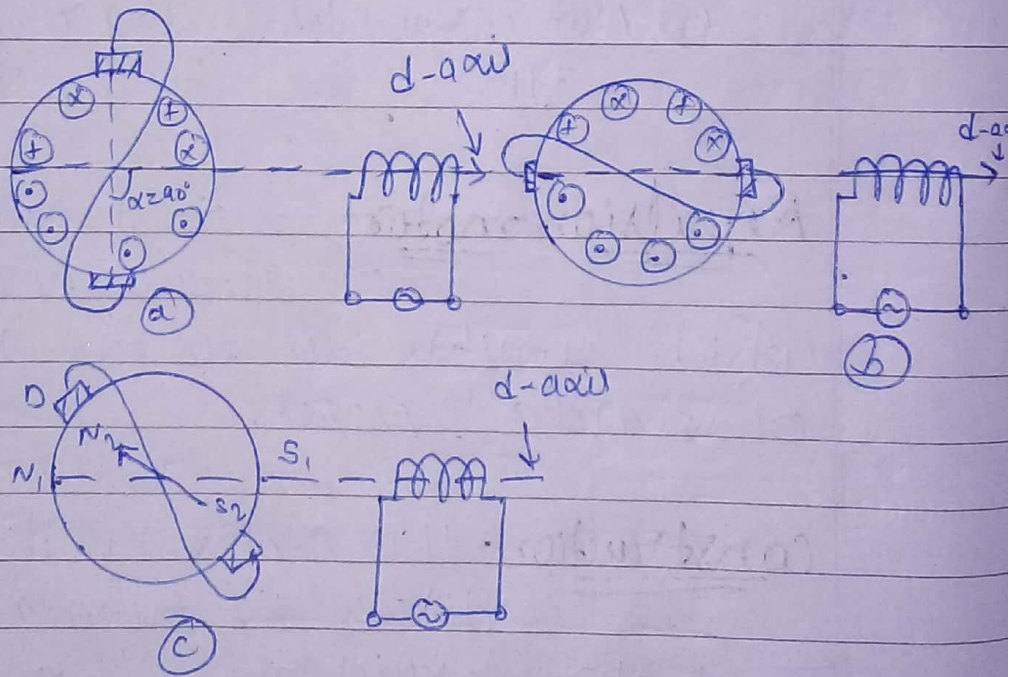 d-axis
d-a
α=90°
a
b
d-axis
D
N2
N1
S1
S2
c